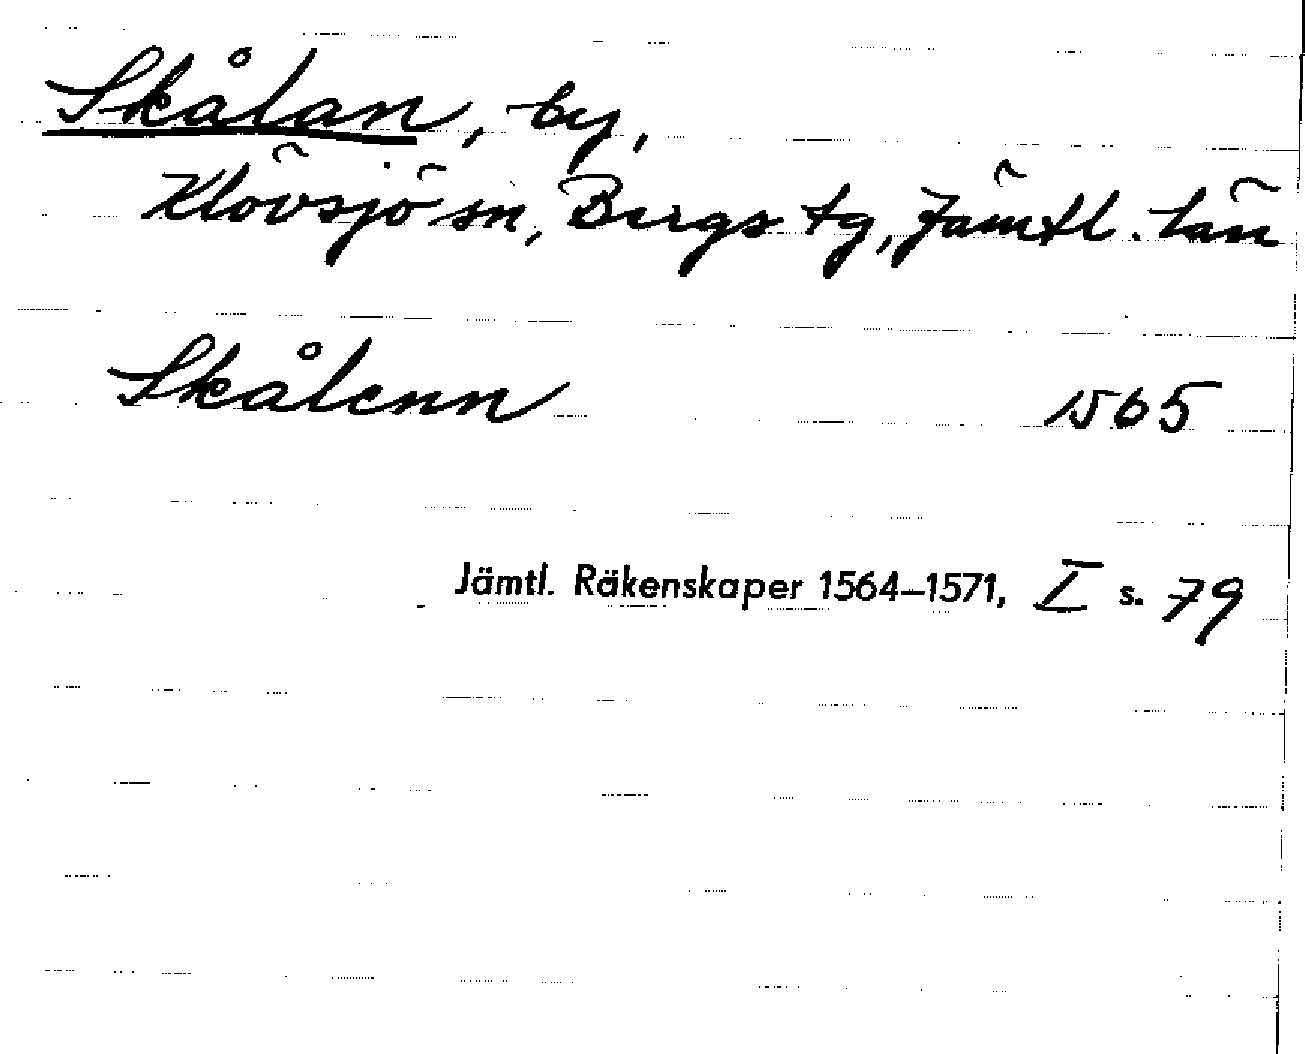 Skålan, by,
Klövsjö sn, Bergs tg, Jämtl. län
Skålenn 1565
Jämtl. Räkenskaper 1564–1571, I s. 79